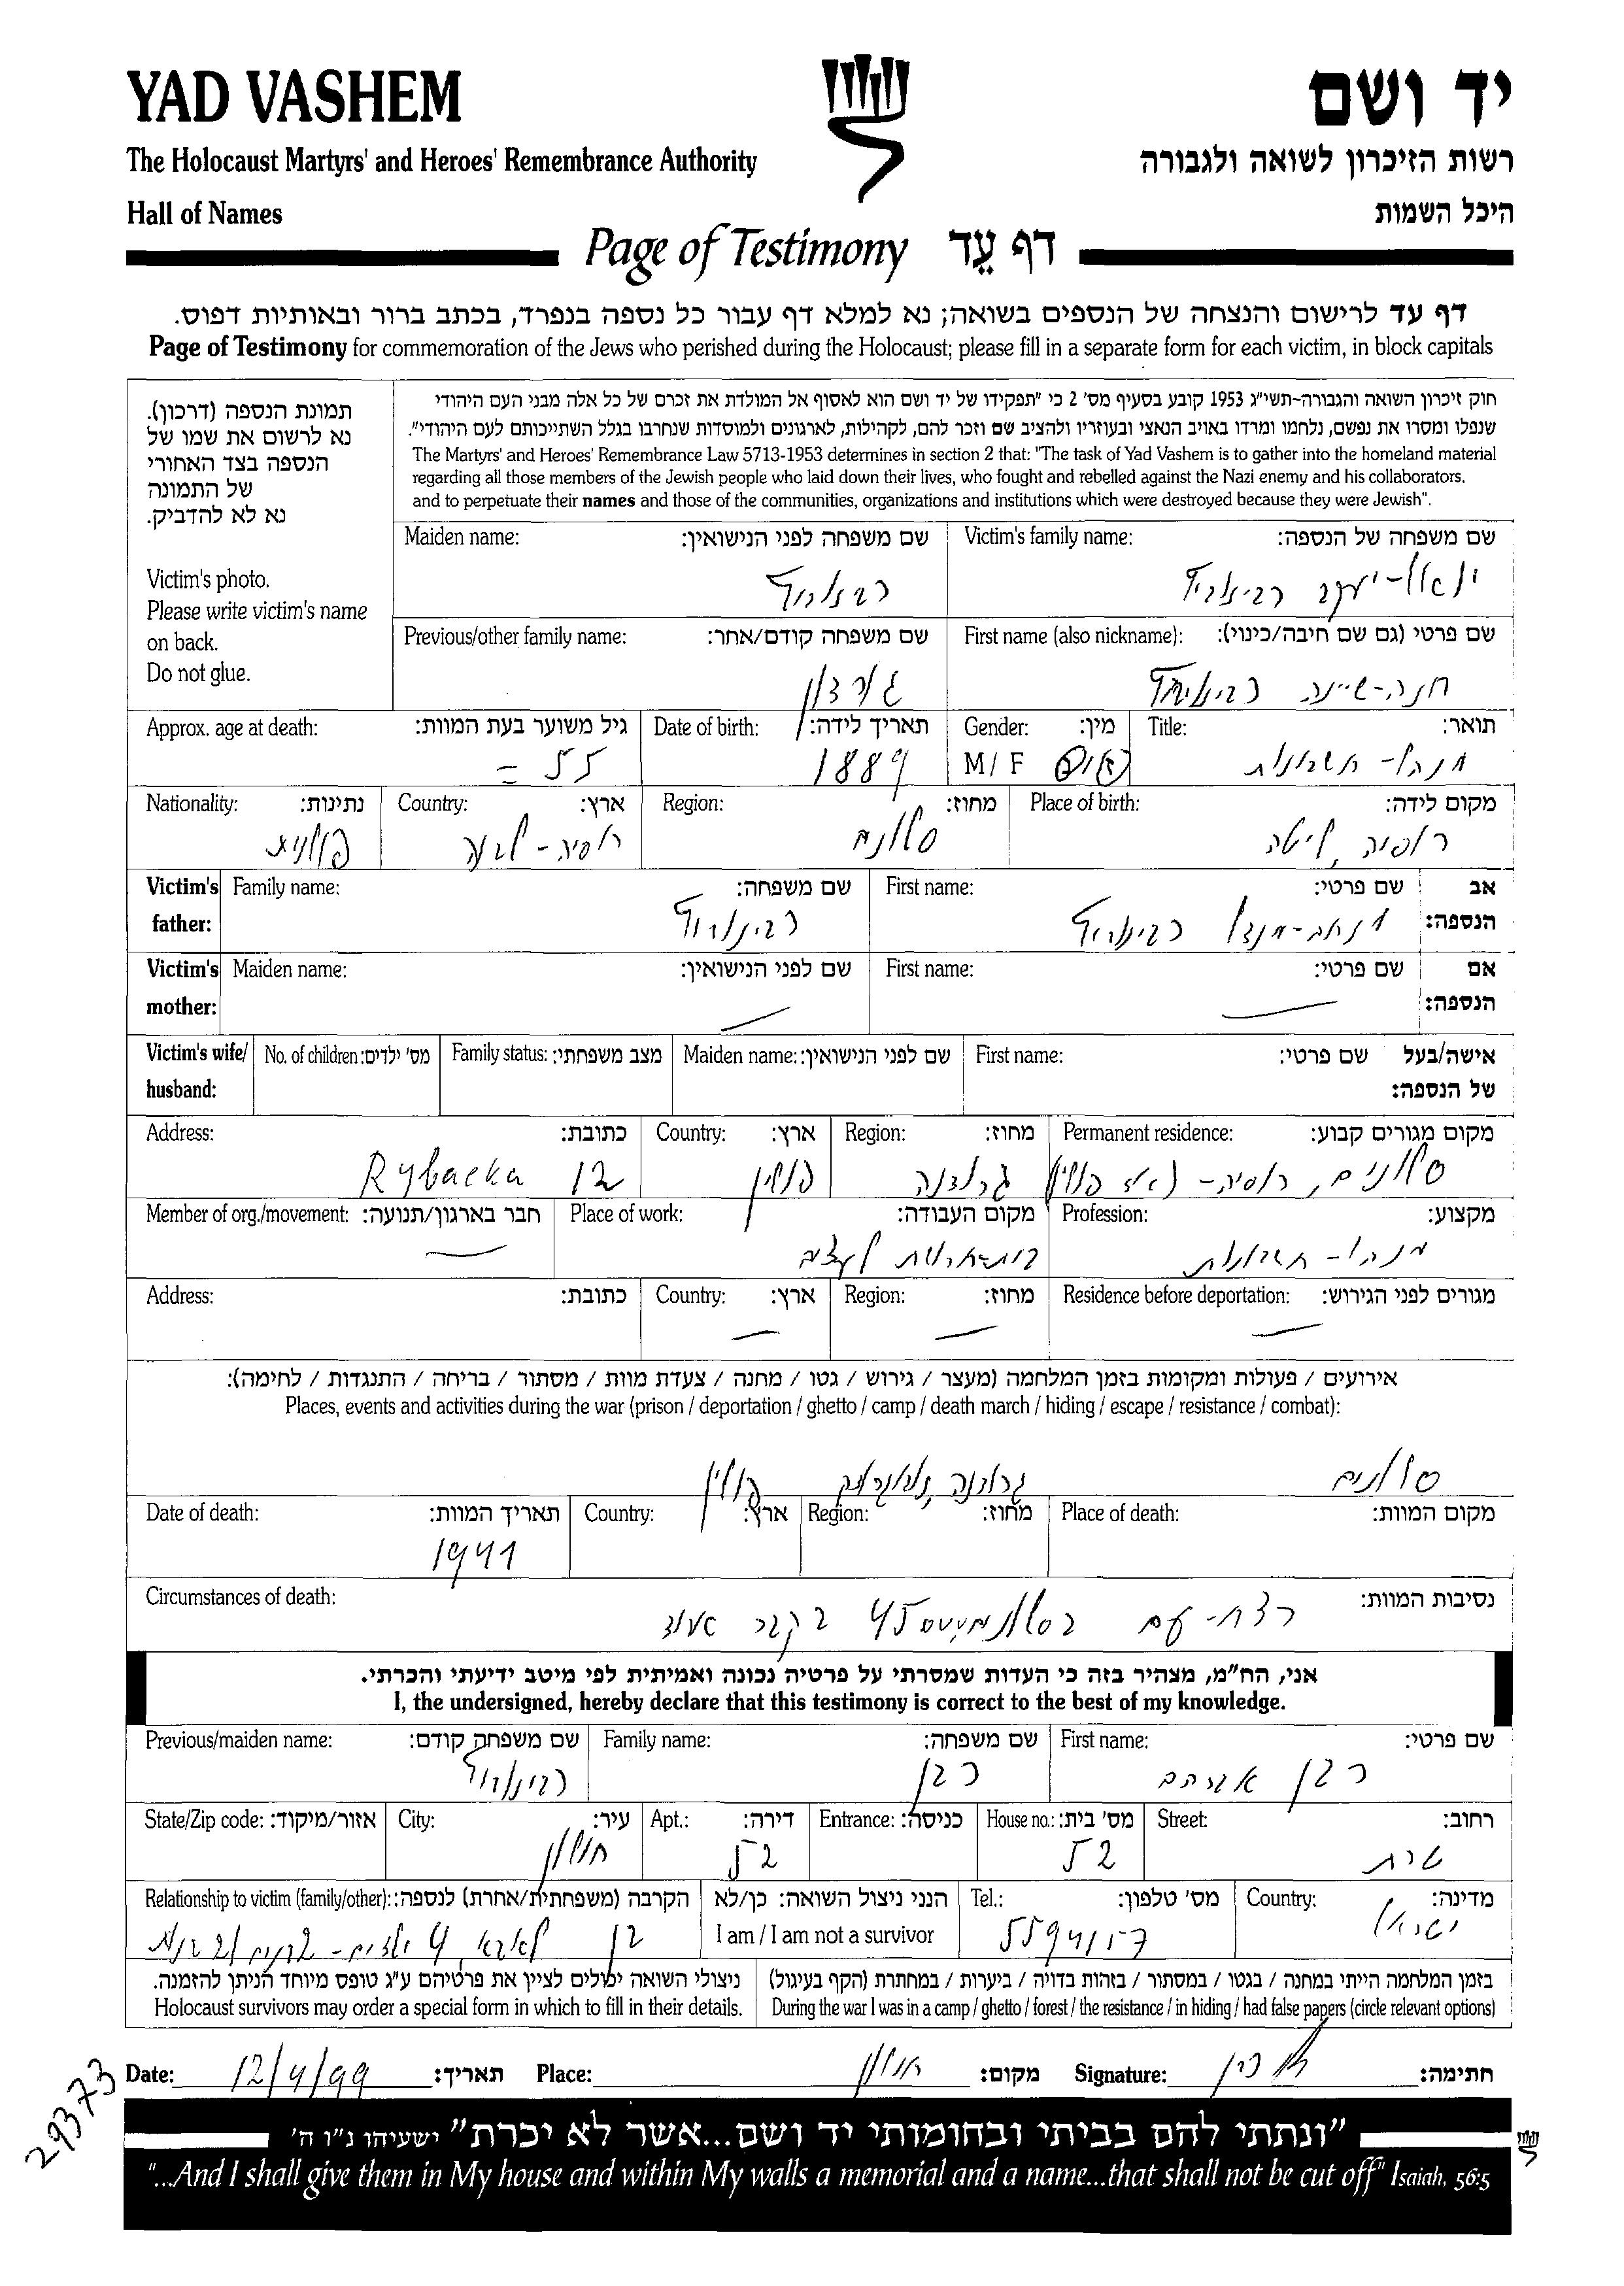 YAD VASHEM
יד ושם
The Holocaust Martyrs' and Heroes' Remembrance Authority
רשות הזיכרון לשואה ולגבורה
Hall of Names
היכל השמות
Page of Testimony דף עֵד
דף עד לרישום והנצחה של הנספים בשואה; נא למלא דף עבור כל נספה בנפרד, בכתב ברור ובאותיות דפוס.
Page of Testimony for commemoration of the Jews who perished during the Holocaust; please fill in a separate form for each victim, in block capitals
תמונת הנספה (דרכון).
נא לרשום את שמו של
הנספה בצד האחורי
של התמונה
נא לא להדביק.
Victim's photo.
Please write victim's name
on back.
Do not glue.
חוק זיכרון השואה והגבורה-תשי"ג 1953 קובע בסעיף מס' 2 כי "תפקידו של יד ושם הוא לאסוף אל המולדת את זכרם של כל אלה מבני העם היהודי
שנפלו ומסרו את נפשם, נלחמו ומרדו באויב הנאצי ובעוזריו ולהציב שם וזכר להם, לקהילות, לארגונים ולמוסדות שנחרבו בגלל השתייכותם לעם היהודי".
The Martyrs' and Heroes' Remembrance Law 5713-1953 determines in section 2 that: "The task of Yad Vashem is to gather into the homeland material
regarding all those members of the Jewish people who laid down their lives, who fought and rebelled against the Nazi enemy and his collaborators,
and to perpetuate their names and those of the communities, organizations and institutions which were destroyed because they were Jewish".
Maiden name: שם משפחה לפני הנישואין: Victim's family name: שם משפחה של הנספה:
רבינוביץ
Previous/other family name: שם משפחה קודם/אחר: First name (also nickname): שם פרטי (גם שם חיבה/כינוי):
גורדון
חנה-שיינה רבינוביץ
Approx. age at death: גיל משוער בעת המוות: Date of birth: תאריך לידה: Gender: מין: Title: תואר:
55 1889 M / F ז/נ מנהל-חשבונות
Nationality: נתינות: Country: ארץ: Region: מחוז: Place of birth: מקום לידה:
פולנית רוסיה- סלונים רוסיה, ליטה
Victim's father: Family name: שם משפחה: First name: שם פרטי: אב הנספה:
רבינוביץ
מנחם-מנדל רבינוביץ
Victim's mother: Maiden name: שם לפני הנישואין: First name: שם פרטי: אם הנספה:
Victim's wife/ husband: No. of children: מס' ילדים: Family status: מצב משפחתי: Maiden name: שם לפני הנישואין: First name: שם פרטי: אישה/בעל של הנספה:
Address: כתובת: Country: ארץ: Region: מחוז: Permanent residence: מקום מגורים קבוע:
Rybacka 12 פולין גרודנה סלונים, רוסיה- (אז פולין)
Member of org./movement: חבר בארגון/תנועה: Place of work: מקום העבודה: Profession: מקצוע:
בית-חרושת לעצים מנהל-חשבונות
Address: כתובת: Country: ארץ: Region: מחוז: Residence before deportation: מגורים לפני הגירוש:
אירועים / פעולות ומקומות בזמן המלחמה (מעצר / גירוש / גטו / מחנה / צעדת מוות / מסתור / בריחה / התנגדות / לחימה):
Places, events and activities during the war (prison / deportation / ghetto / camp / death march / hiding / escape / resistance / combat):
סלונים גרודנה, פולין
Date of death: תאריך המוות: Country: ארץ: Region: מחוז: Place of death: מקום המוות:
1941
Circumstances of death: נסיבות המוות:
רצח-עם בקבר אחד
אני, הח"מ, מצהיר בזה כי העדות שמסרתי על פרטיה נכונה ואמיתית לפי מיטב ידיעתי והכרתי.
I, the undersigned, hereby declare that this testimony is correct to the best of my knowledge.
Previous/maiden name: שם משפחה קודם: Family name: שם משפחה: First name: שם פרטי:
רבינוביץ רבן רבן אברהם
State/Zip code: אזור/מיקוד: City: עיר: Apt.: דירה: Entrance: כניסה: House no.: מס' בית: Street: רחוב:
חולון 52 52 שרת
Relationship to victim (family/other): הקרבה (משפחתית/אחרת) לנספה: הנני ניצול השואה: כן/לא Tel.: מס' טלפון: Country: מדינה:
I am / I am not a survivor
ישראל
בזמן המלחמה הייתי במחנה / בגטו / במסתור / בזהות בדויה / ביערות / במחתרת (הקף בעיגול)
During the war I was in a camp / ghetto / forest / the resistance / in hiding / had false papers (circle relevant options)
ניצולי השואה יכולים לציין את פרטיהם ע"ג טופס מיוחד הניתן להזמנה.
Holocaust survivors may order a special form in which to fill in their details.
Date: 12/4/99 תאריך: Place: חולון מקום: Signature: חתימה:
29373
"ונתתי להם בביתי ובחומותי יד ושם...אשר לא יכרת" ישעיהו נ"ו ה'
"...And I shall give them in My house and within My walls a memorial and a name...that shall not be cut off" Isaiah, 56:5